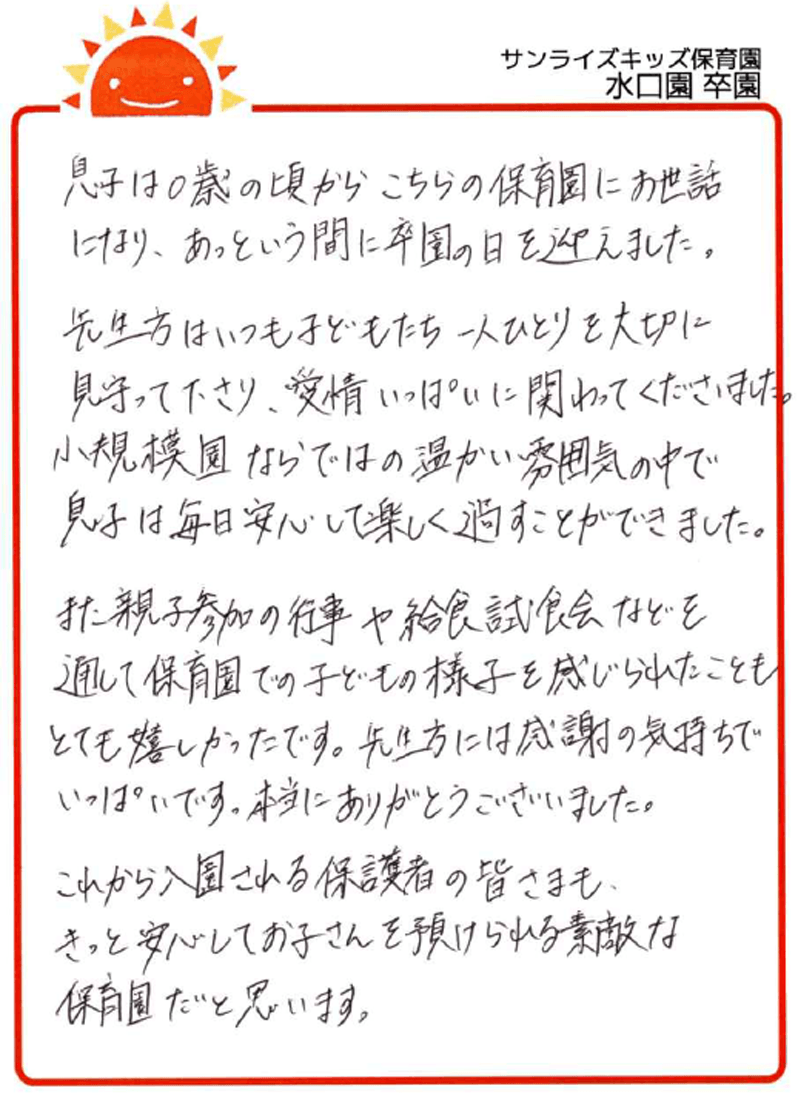 サンライズキッズ保育園
水口園 卒園
息子は0歳の頃から こちらの保育園にお世話
になり、あっという間に卒園の日を迎えました。
先生方はいつも子どもたち一人ひとりを大切に
見守って下さり、愛情いっぱいに関わってくださいました。
小規模園ならではの温かい雰囲気の中で
息子は毎日安心して楽しく過すことができました。
また親子参加の行事や給食試食会などを
通して保育園での子どもの様子を感じられたことも
とても嬉しかったです。先生方には感謝の気持ちで
いっぱいです。本当にありがとうございました。
これから入園される保護者の皆さまも、
きっと安心してお子さんを預けられる素敵な
保育園だと思います。